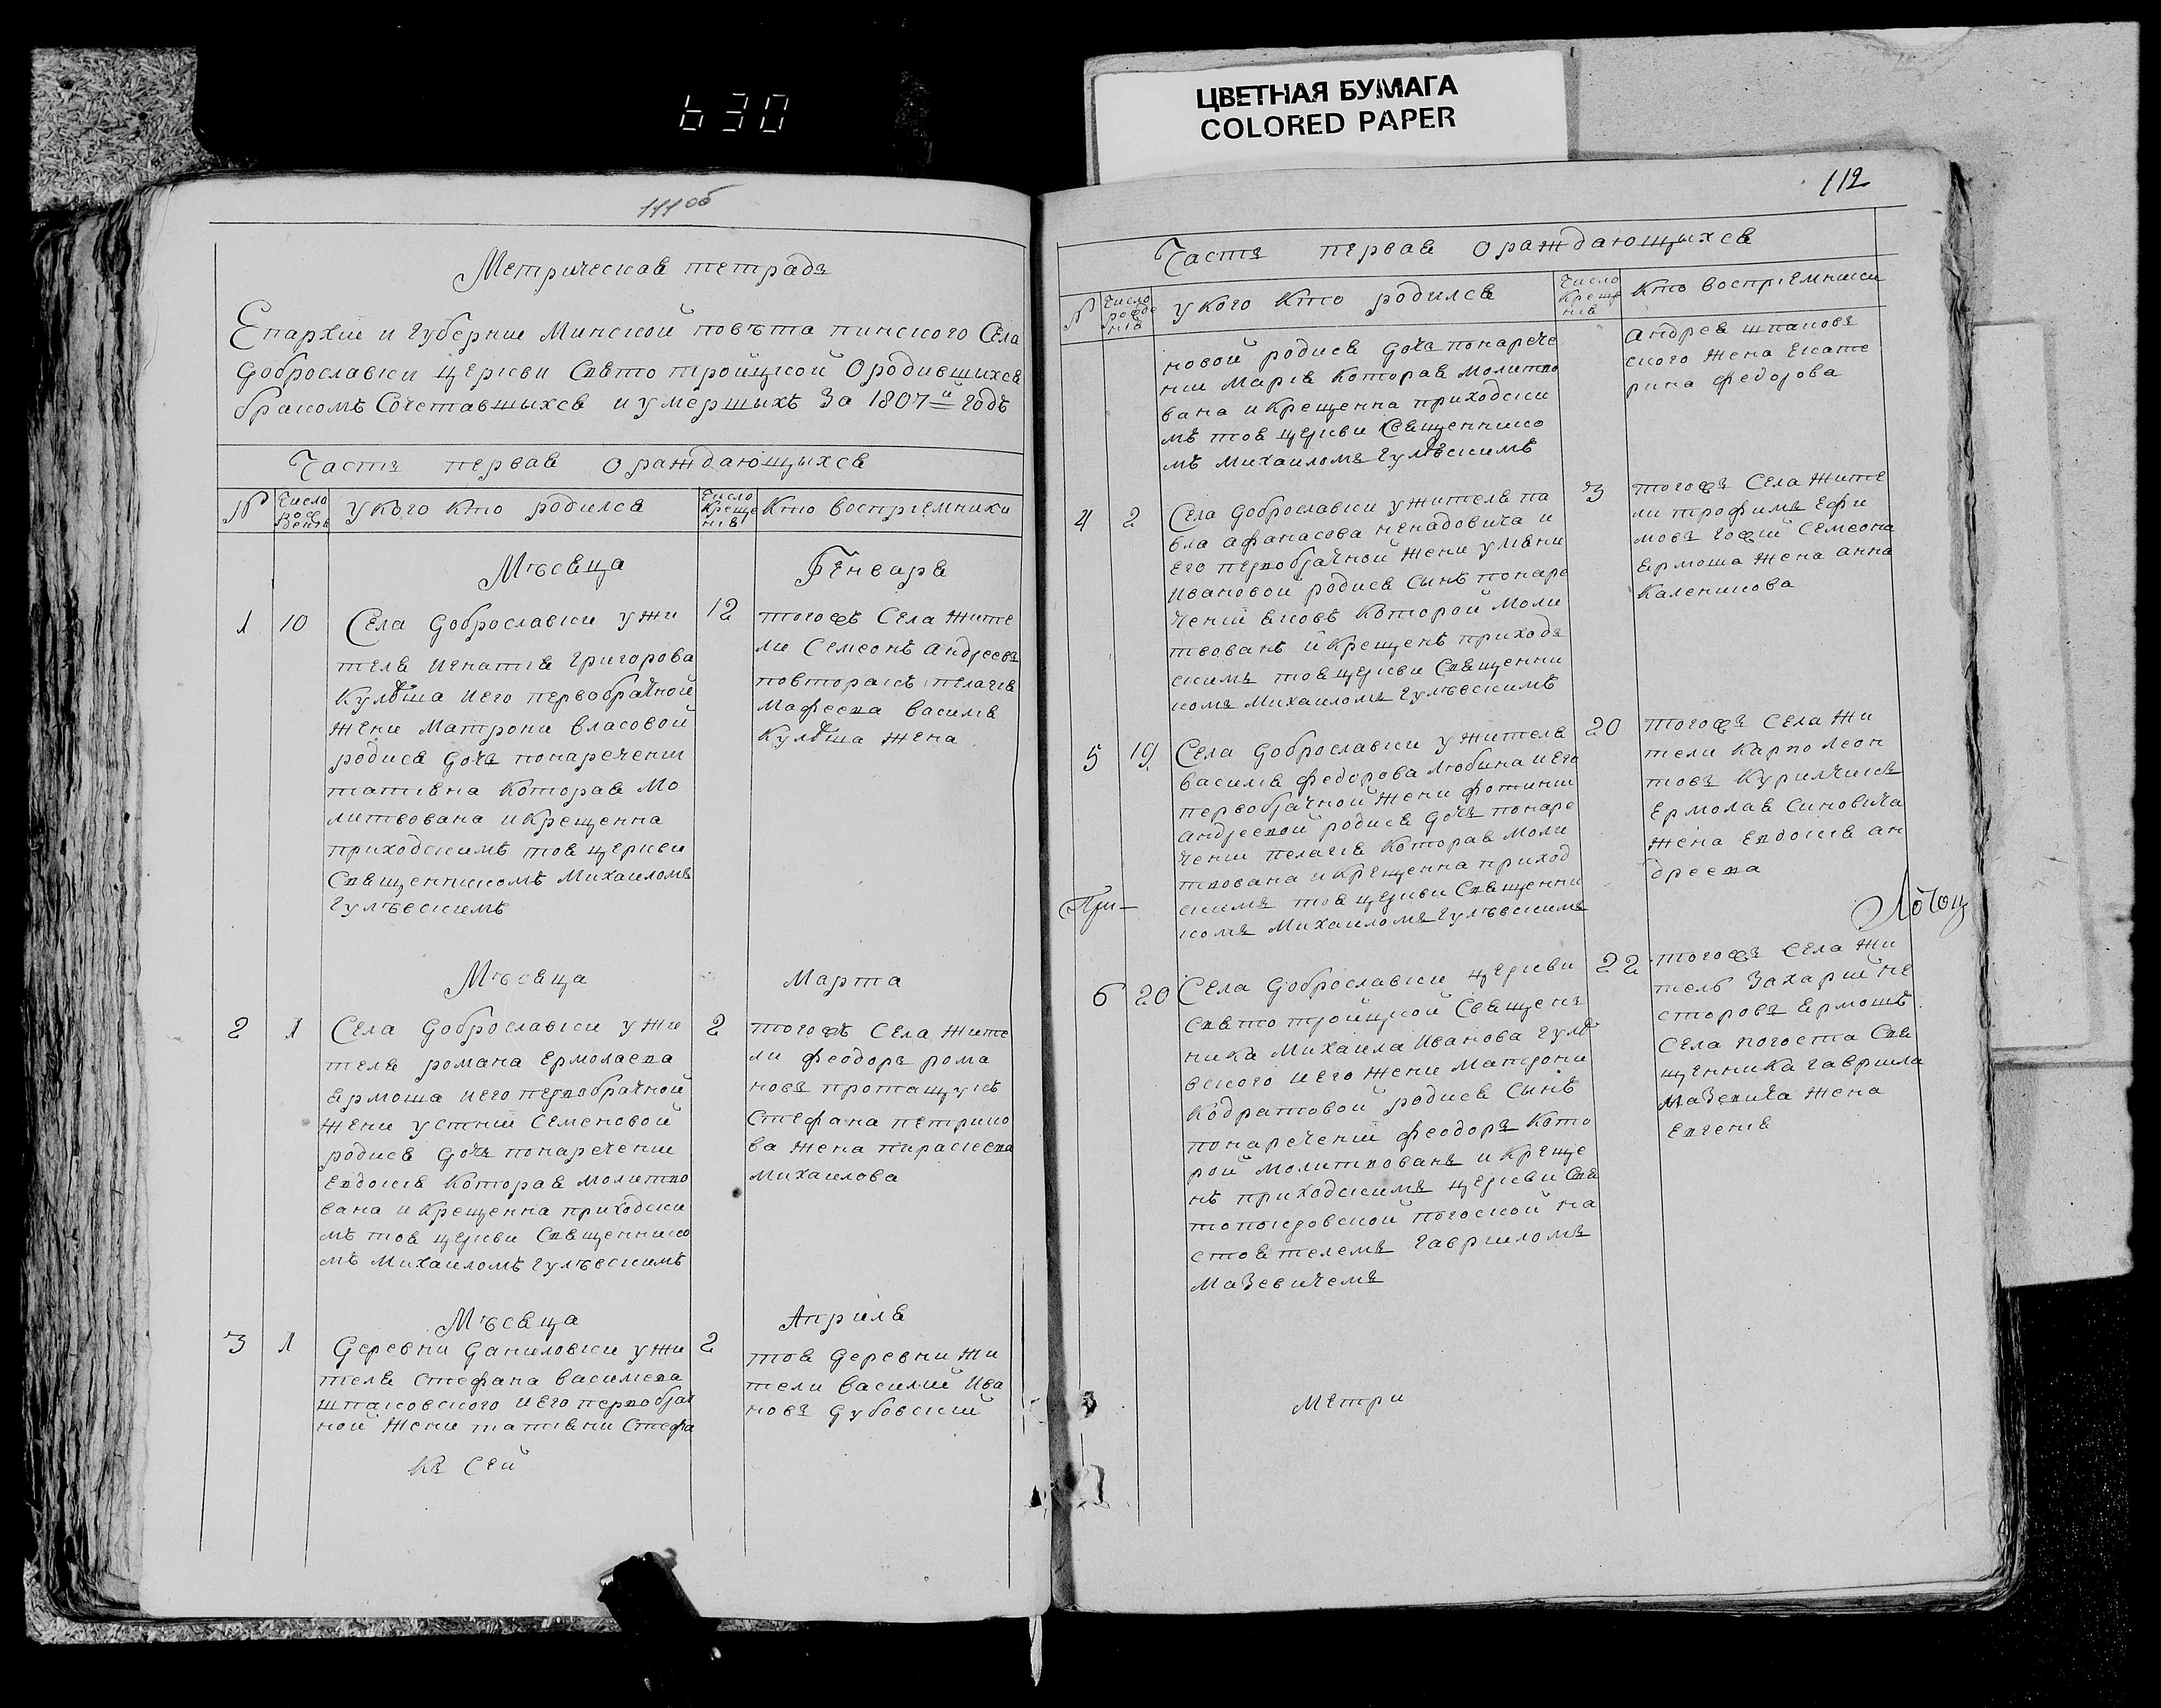 630
ЦВЕТНАЯ БУМАГА
COLORED PAPER
111об
Метрическая тетрадь
Епархіи и Губерніи Минской повѣта пинского Села
Доброславки церкви Свято тройцкой О родившихся
бракомъ Сочетавшыхся и умершыхъ За 1807й годъ
Часть первая О раждающыхся
№
Число рождения
У кого Кто родился
Число Креще нія
Кто воспріемники
Мѣсяца Генваря
1
10
Села Доброславки у жи
теля Игнатія Григорова
Кульбша и его первобрачной
жени Матрони Власовой
родися дочь по наречении
татіяна Которая Мо
литвована и Крещенна
приходскимъ тоя церкви
Священникомъ Михаиломъ
Гулѣвскимъ
12
того жъ Села жите
ли Семеонъ Андреевъ
повторакъ пелагія
Мафеева Василя
Кульбша жена
Мѣсяца Марта
2
1
Села Доброславки у жи
теля романа Ермолаева
Ярмоша и его первобрачной
жени устініи Семеновой
родися дочь по наречении
Евдокія Которая молитво
вана и Крещенна приходски
мъ тоя церкви Священнико
мъ Михаиломъ Гулѣвскимъ
2
того жъ Села жите
ли феодоръ рома
новъ протащукъ
Стефана петрико
ва жена параскева
Михаилова
Мѣсяца Апрыля
3
1
Деревни Даниловки у жи
теля Стефана Василиева
шпаковского и его первобрач
ной жени татіяни Стефа
2
тоя деревни жи
тели Василий Ива
новъ Дубовский
Къ Сей
112
Часть первая О раждающыхся
№
Число рожде нія
У кого Кто родился
Число Креще нія
Кто воспріемники
новой родися дочь по нарече
нии Марія Которая Молитво
вана и Крещенна приходски
мъ тоя церкви Священнико
мъ Михаиломъ Гулѣвскимъ
Андрея шпаков
ского жена Екате
рина федорова
4
2
Села Доброславки у жителя па
вла Афанасова ненадовича и
его первобрачной жени уліяни
Ивановой родися Сынъ по наре
чении Яковъ Которой Моли
твованъ и Крещенъ приход
скимъ тоя церкви Священни
комъ Михаиломъ Гулѣвскимъ
3
того жъ Села жите
ли трофимъ Ефи
мовъ Семеона
Ярмоша жена анна
Каленикова
5
19
Села Доброславки у жителя
Василя федорова Любина и его
первобрачной жени фотинии
Андреевой родися дочь по наре
чении пелагія Которая Моли
твована и Крещенна приход
скимъ тоя церкви Священни
комъ Михаиломъ Гулѣвскимъ
20
того жъ Села жи
тели Карпо Леон
товъ Курилчикъ
Ермолая Синовича
жена Евдокія ан
дреева
При-
6
20
Села Доброславки церкви
Свято тройцкой Священ
ника Михаила Иванова Гулѣ
вского и его жени Матрони
Кодратовой родися Сынъ
по наречении феодоръ Кото
рой Молитвованъ и Креще
нъ приходскимъ церкви Свя
топокровской погоской на
стоятелемъ Гавриломъ
Мазевичемъ
22
того жъ Села жи
тель Захарий не
сторовъ Ермошъ
Села погоста Свя
щенника Гавриила
Мазевича жена
Евгенія
Метри